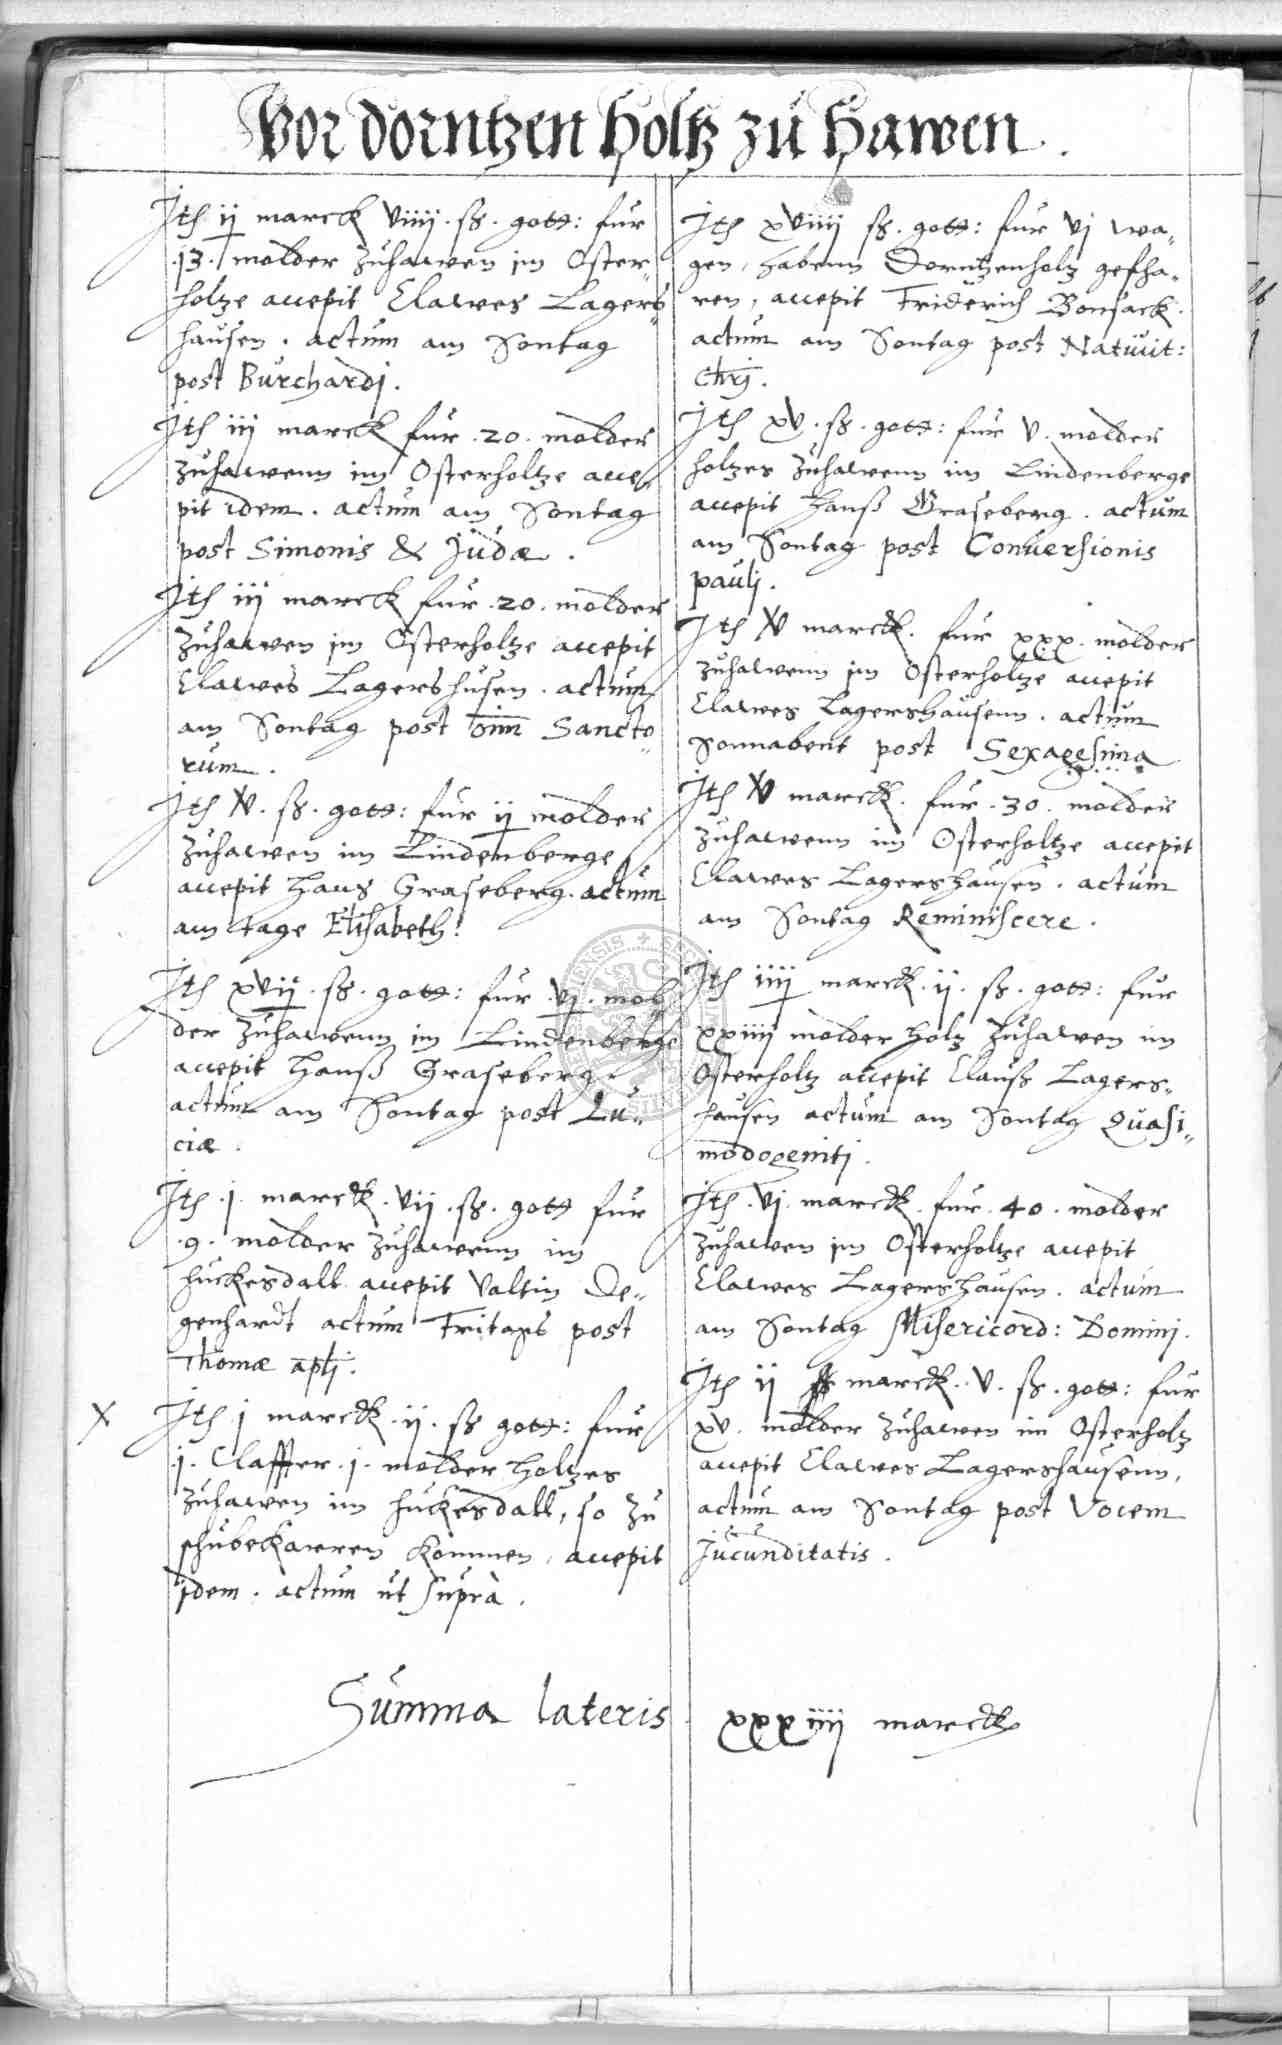 Vor dorntzen Holtz zu Hawen.
Ith ij marck viiij. ß. gott: fur
.13. molder zuhawen im Oster„
holtze accepit Clawes Lagers„
hausen. actum am Sontag
post Burchardj.
Ith iij marck fur .20. molder
zuhawenn im Osterholtze acce„
pit idem. actum am Sontag
post Simonis & Judæ.
Ith iij marck fur .20. molder
zuhawen im Osterholtze accepit
Clawes Lagershusen. actum
am Sontag post oim Sancto„
rum.
Ith V. ß. gott: fur ij molder
zuhawen im Lindenberge
accepit Hans Graseberg. actum
am tage Elisabeth.
Ith xvij. ß. gott: fur .vj. mol„
der zuhawenn im Lindenberge
accepit Hanß Graseberg.
actum am Sontag post Lu„
ciæ.
Ith .j. marck. vij. ß. gott fur
.9. molder zuhawenn im
huckesdall accepit Valtin De„
genhardt actum Fritags post
Thomæ aplj.
X Ith j marck .ij. ß gott: fur
.j. Claffter .j. molder holtzes
zuhawen im huckesdall, so zu
schubekarren kommen, accepit
idem. actum ut supra.
Ith xviiij ß. gott: fur vj wa„
gen, habenn Dorntzenholtz gefha„
ren, accepit Friderich Bonsack.
actum am Sontag post Natiuit:
Chrj.
Ith xv. ß. gott: fur v. molder
holtzes zuhawenn im Lindenberge
accepit Hanß Graseberg. actum
am Sontag post Conuersionis
paulj.
Ith V marck. fur xxx. molder
zuhawenn im Osterholtze accepit
Clawes Lagershausenn. actum
Sonnabent post Sexagesima
Ith V marck. fur .30. molder
zuhawenn im Osterholtze accepit
Clawes Lagershausen. actum
am Sontag Reminiscere.
Ith iiij marck. ij. ß. gott: fur
xxiiij molder holtz zuhawen im
Osterholtz accepit Clauß Lagers„
hausen actum am Sontag Quasi„
modogenitj.
Ith .vj. marck. fur .40. molder
zuhawen im Osterholtze accepit
Clawes Lagershausen. actum
am Sontag Misericord: Dominj.
Ith ij marck. v. ß. gott: fur
xv. molder zuhawen im Osterholtz
accepit Clawes Lagershausenn,
actum am Sontag post Vocem
Jucunditatis.
Summa lateris xxxiiij marck